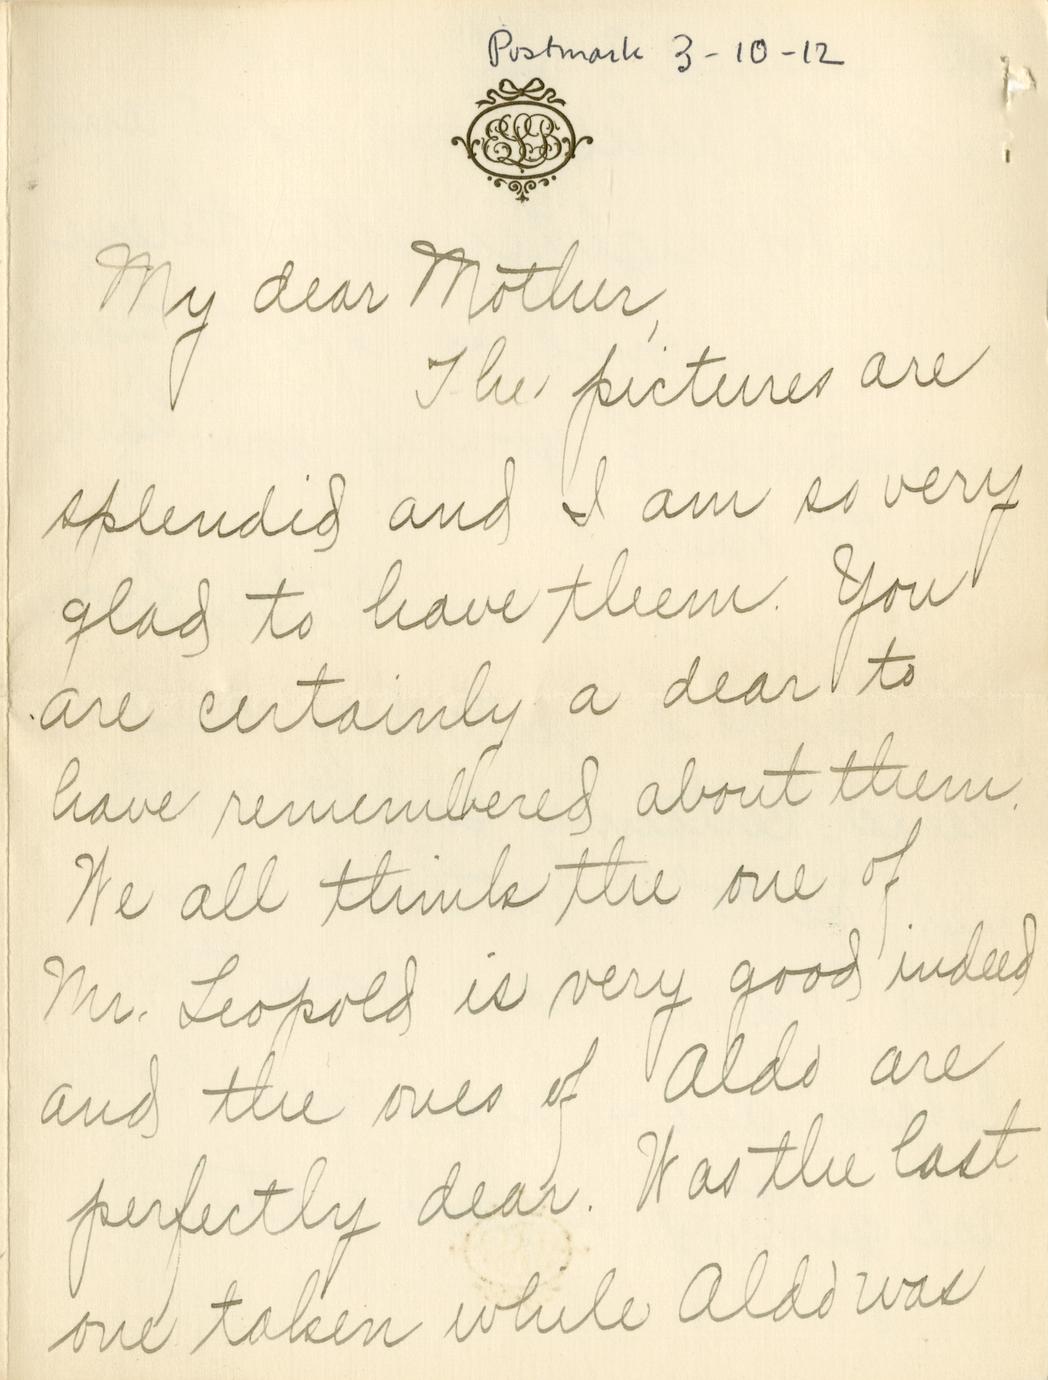 Postmark 3-10-12
ELB
My dear Mother,
The pictures are
splendid and I am so very
glad to have them. You
are certainly a dear to
have remembered about them.
We all think the one of
Mr. Leopold is very good indeed
and the ones of Aldo are
perfectly dear. Was the last
one taken while Aldo was